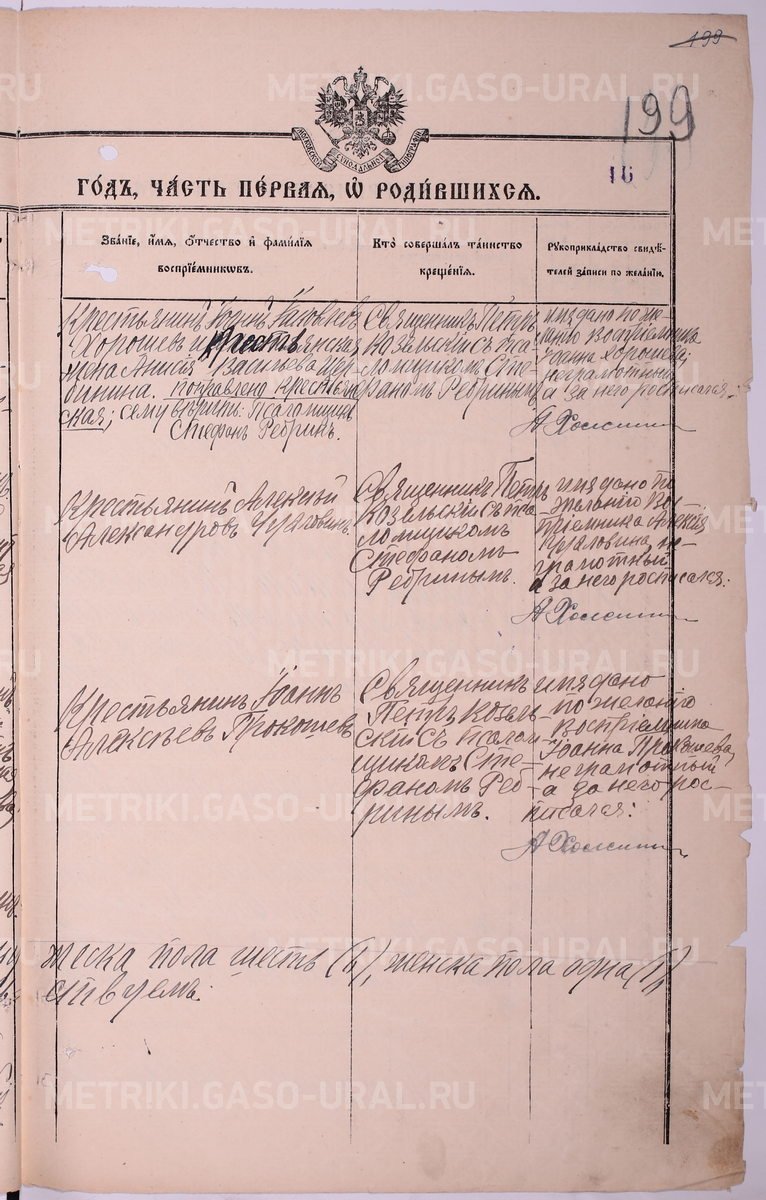 199
199
16
МОСКОВСКОЙ СѴНОДАЛЬНОЙ ТИПОГРАФІИ
ГОДЪ, ЧАСТЬ ПЕРВАЯ, Ѽ РОДИВШИХСЯ.
Званіе, имя, отчество и фамилія
воспріемниковъ.
Кто совершалъ таинство
крещенія.
Рукоприкладство свидѣ-
телей записи по желанію.
Крестьянинъ Іоаннъ
Хорошевъ и крестьянская
жена Анисія Васильева
Поправлено крестьян
ская; сему вѣритъ: Псаломщикъ
Стефанъ Ребринъ.
Священникъ Петръ
Козельскій съ пса
ломщикомъ Сте-
фаномъ Ребринымъ
воспріемника
Іоанна Хорошева,
неграмотный
а за него росписался:
Крестьянинъ Алексѣй
Александровъ
Священникъ Петръ
Козельскій съ пса
ломщикомъ
Стефаномъ
Ребринымъ.
дано по
желанію во
пріемника Алексія
не-
грамотный
а за него росписался:
Крестьянинъ Іоаннъ
Алексѣевъ Прокошевъ
Священникъ
Петръ Козель-
скій съ псалом
щикомъ Сте-
фаномъ Реб-
ринымъ.
дано
по желанію
воспріемника
Іоанна Прокошева,
неграмотный
а за него рос-
писался:
пола шесть (6), женска пола одна (1)
METRIKI.GASO-URAL.RU